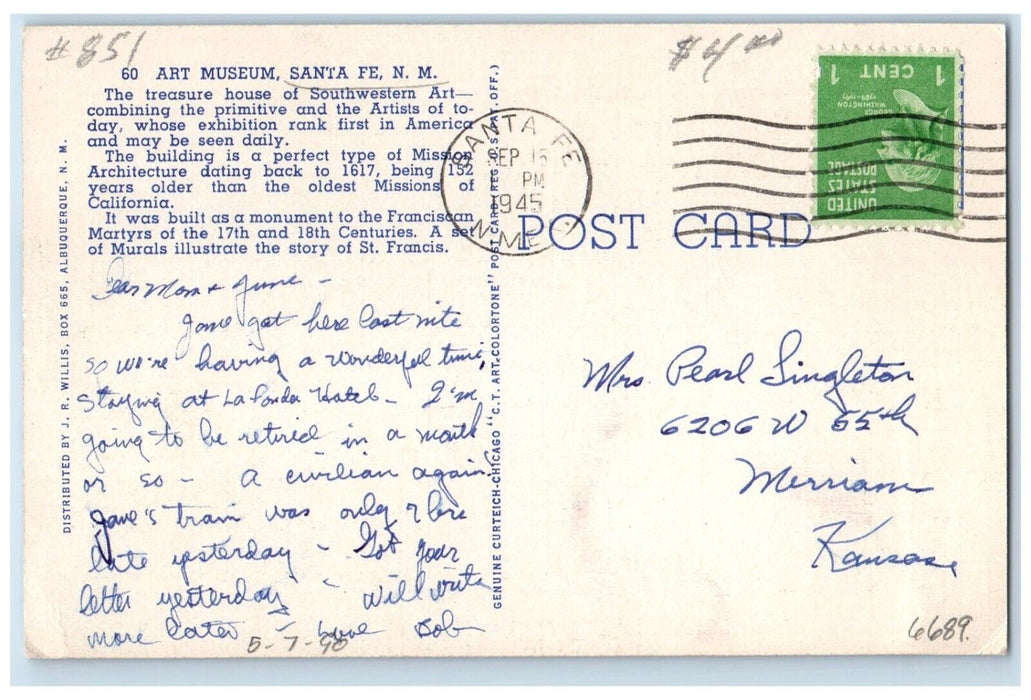 #851
$4.00
60 ART MUSEUM, SANTA FE, N. M.
The treasure house of Southwestern Art—
combining the primitive and the Artists of to-
day, whose exhibition rank first in America
and may be seen daily.
The building is a perfect type of Mission
Architecture dating back to 1617, being 152
years older than the oldest Missions of
California.
It was built as a monument to the Franciscan
Martyrs of the 17th and 18th Centuries. A set
of Murals illustrate the story of St. Francis.
Dear Mom & June -
Jane got here last nite
so we're having a wonderful time,
staying at La Fonda Hotel - I'm
going to be retired in a month
or so - A civilian again!
Jane's train was only 7 hrs
late yesterday - Got your
letter yesterday - will write
more later - Love Bob
5-7-90
DISTRIBUTED BY J. R. WILLIS, BOX 665, ALBUQUERQUE, N. M.
GENUINE CURTEICH-CHICAGO "C.T. ART-COLORTONE" POST CARD (REG. U.S. PAT. OFF.)
SANTA FE
SEP 15
PM
1945
N. MEX.
POST CARD
1 CENT 1
GEORGE
WASHINGTON
1789-1797
UNITED
STATES
POSTAGE
Mrs. Pearl Singleton
6206 W 55th
Merriam
Kansas
6689.